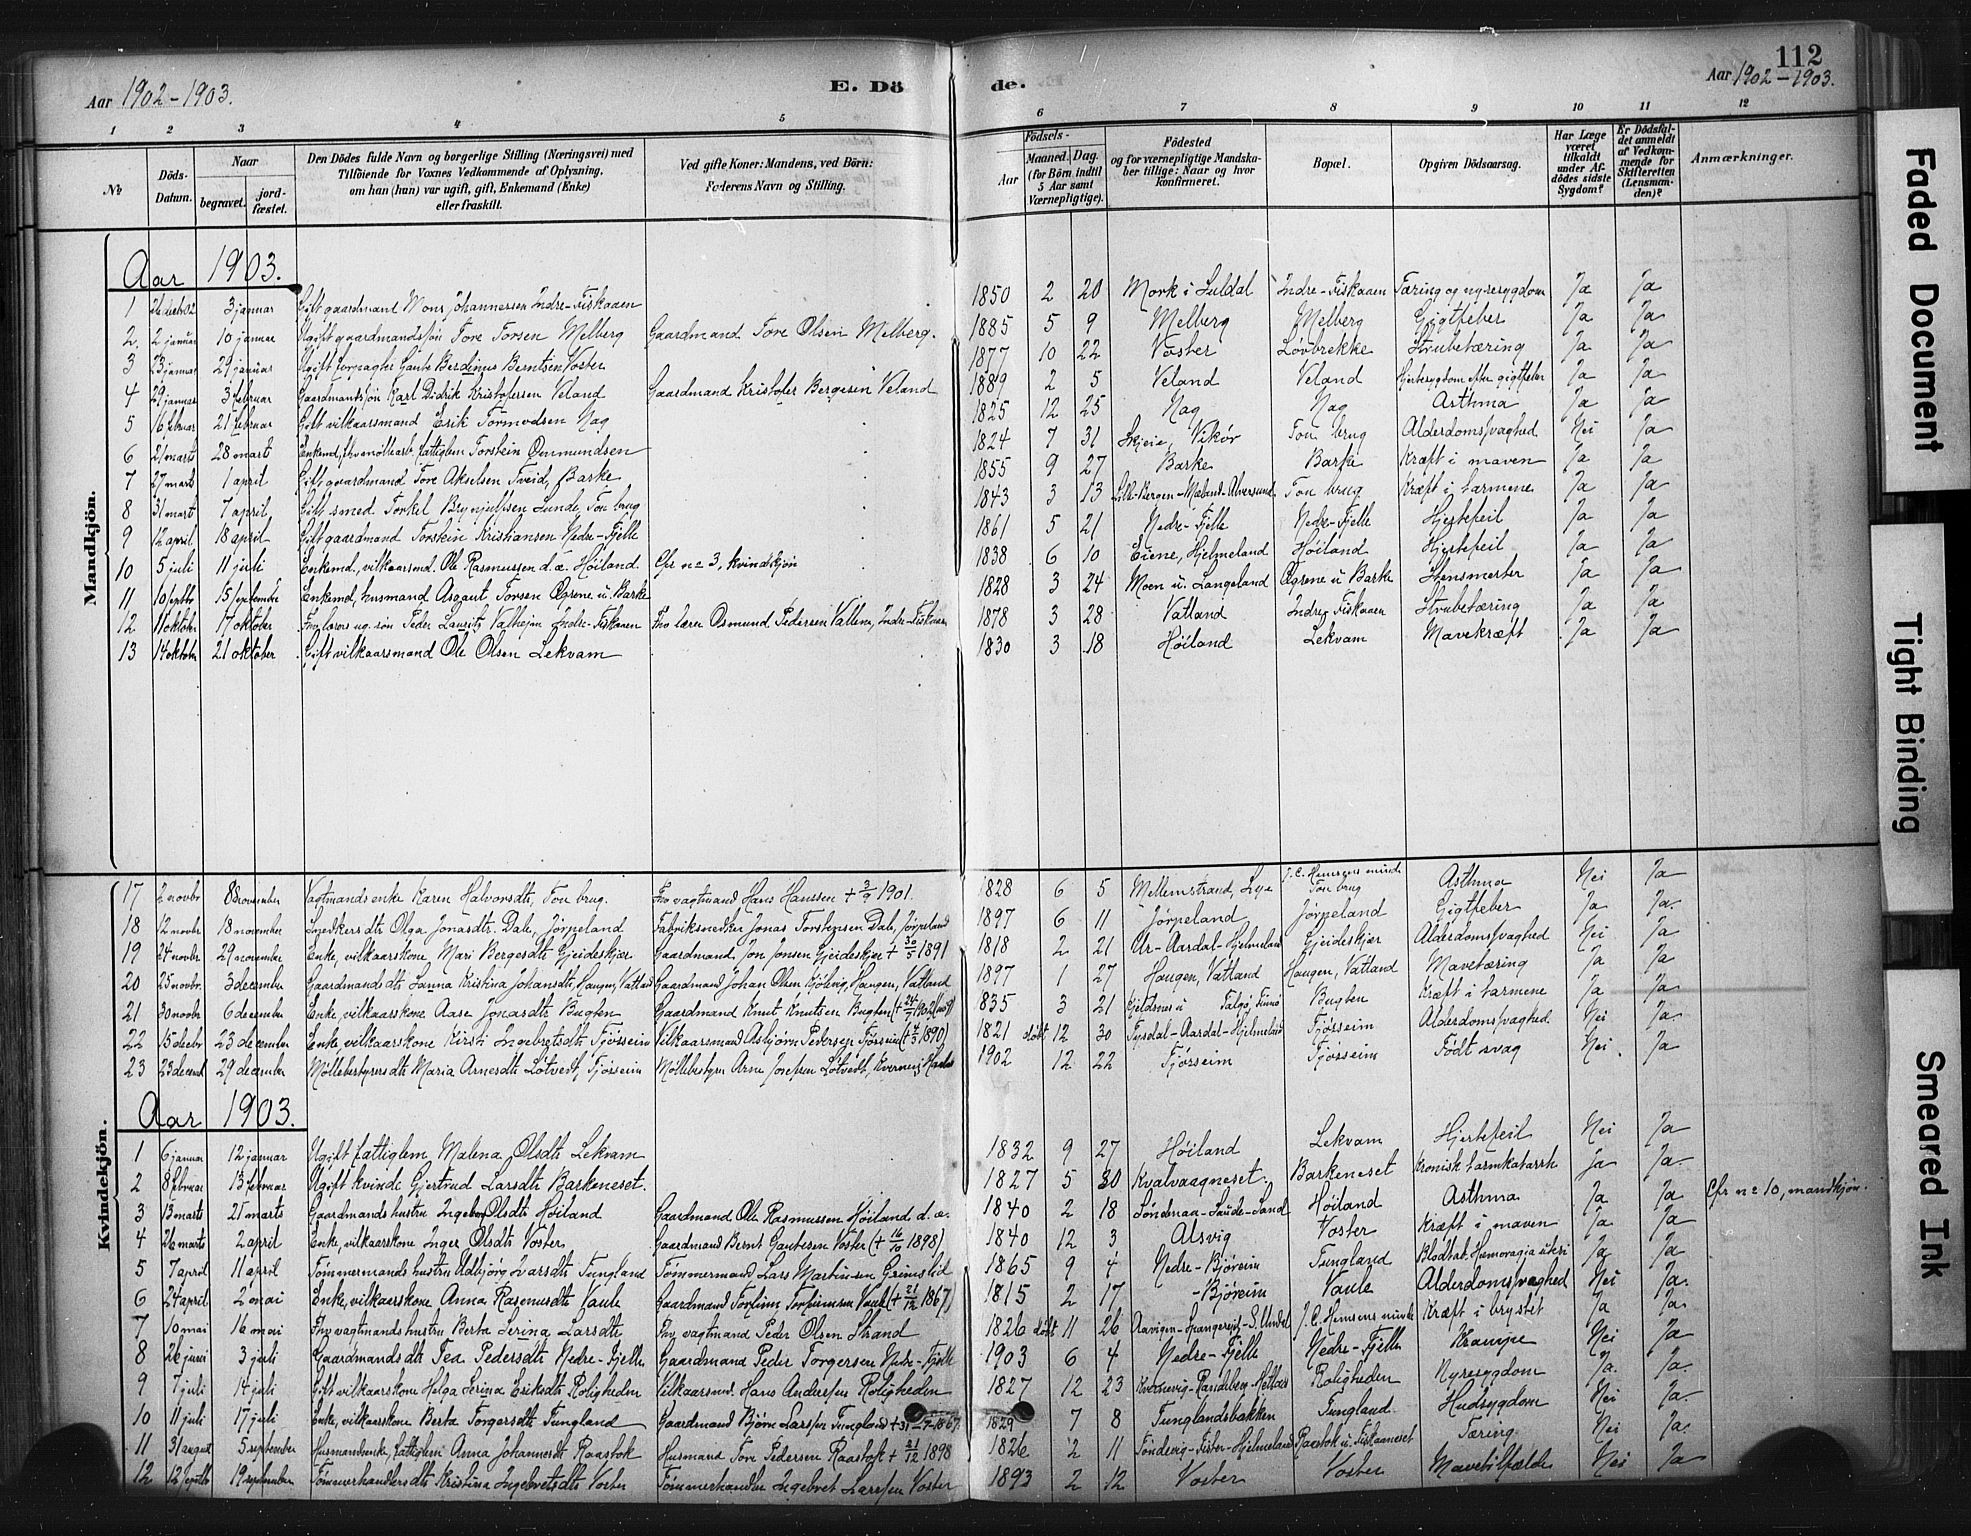 Aar 1902-1903.
E. Dö
de.
112
Aar 1902-1903.
1 2 3 4 5 6 7 8 9 10 11 12
№
Döds-Datum.
Naar
begravet.
jord-fæstet.
Den Dödes fulde Navn og borgerlige Stilling (Næringsvei) med
Tilföiende for Voxnes Vedkommende af Oplysning,
om han (hun) var ugift, gift, Enkemand (Enke)
eller fraskilt.
Ved gifte Koner: Mandens, ved Börn:
Faderens Navn og Stilling.
Födsels-
Aar
Maaned. Dag.
(for Börn indtil
5 Aar samt
Værnepligtige).
Födested
og for værnepligtige Mandska-
ber tillige: Naar og hvor
konfirmeret.
Bopæl.
Opgiven Dödsaarsag.
Har Læge
været
tilkaldt
under Af-
dödes sidste
Sygdom?
Er Dödsfal-
det anmeldt
af Vedkom-
mende for
Skifteretten
(Lensman-
den)?
Anmærkninger.
Mandkjön.
Aar 1903.
1 3 januar Gift gaardmand Mons Johannessen Indre-Fiskaaen 1850 2 20 Mork i Suldal Indre-Fiskaaen Tæring og nyresygdom Ja Ja
2. 2 januar 10 januar Ugift gaardmandssön Tore Torsen Melberg Gaardmand Tore Olsen Melberg. 1885 5 9 Melberg Melberg Gigtfeber Ja Ja
3 23 januar 29 januar Ugift forpagter Gaute Berdinus Berntsen Voster 1877 10 22 Voster Løvbrekke Strubetæring Ja Ja
4 29 januar 3 februar Gaardmandssön Karl Didrik Kristofersen Veland Gaardmand Kristofer Bergesen Veland 1889 2 5 Veland Veland Hjertesygdom efter gigtfeber Ja Ja
5 16 februar 21 februar Gift vilkaarsmand Erik Tormodsen Nag 1825 12 25 Nag Nag Asthma Ja Ja
6 21 marts 28 mart Enkemd, fattiglem Torstein Omundsen 1824 7 31 Skjeie, Vikör Tou brug Alderdomssvaghed Nei Ja
7 27 marts 1 april Gift gaardmand Tore Akselsen Tveid, Barke 1855 9 27 Barke Barke Kræft i maven Ja Ja
8 31 mart 7 april Gift smed Torkel Brynjulfsen Lunde, Tou brug 1843 3 13 Lill-Bergen-Mæland-Alversund Tou brug Kræft i tarmene Ja Ja
9 12 april 18 april Gift gaardmand Torstein Kristiansen Nedre-Fjelle 1861 5 21 Nedre-Fjelle Nedre-Fjelle Hjertefeil Ja Ja
10 5 juli 11 juli Enkemd, vilkaarsmd. Ole Rasmussen d. æ. Höiland. Cfr no 3, kvindekjön 1838 6 10 Eiene, Hjelmeland Höiland Hjertefeil Ja Ja
11 10 septbr 15 september Enkemd, husmand Asgaut Torsen Øgrene u. Barke 1828 3 24 Moen u. Langeland Øgrene u Barke Stensmerter Ja Ja
12 11 oktober 17 oktober Fhv lærers ug. sön Peder Lauritz Valhejm Indre-Fiskaaen Fhv lærer Osmund Pedersen Vallem, Indre-Fiskaaen 1878 3 28 Vatland Indre Fiskaaen Strubetæring Ja Ja
13 14 oktober 21 oktober Gift vilkaarsmand Ole Olsen Lekvam 1830 3 18 Höiland Lekvam Mavekræft Ja Ja
Kvindekjön.
17 2 novbr 8 november Vagtmands enke Karen Halvorsdtr, Tou brug. Fhv vagtmand Hans Hanssen + 3/9 1901. 1828 6 5 Mellemstrand, Lye J. C. Hemsens minde Tou brug Asthma Nei Ja
18 12 novbr 18 november Snedkersdtr Olga Jonasdtr. Dale, Jörpeland Fabriksnedker Jonas Torstensen Dale, Jörpeland 1897 6 11 Jörpeland Jörpeland Gigtfeber Ja Ja.
19 24 novbr 29 november Enke, vilkaarskone Mari Bergesdtr Gjeideskjær Gaardmand Jon Jonsen Gjeideskjær + 30/5 1891 1818 2 21 Ur-Aardal-Hjelmeland Gjeideskjær Alderdomssvaghed Nei Ja
20 25 novbr. 3 december Gaardmandsdtr Janna Kristina Johansdtr, Haugen, Vatland Gaardmand Johan Olsen Kjölevig, Haugen, Vatland 1897 1 27 Haugen, Vatland Haugen, Vatland Mavetæring Ja Ja
21 30 novbr 6 december Enke, vilkaarskone Aase Jonasdtr Bugten Gaardmand Knut Knutsen Bugten 835 3 21 Kjeldsnes i Talgö, Finnö Bugten Kræft i tarmene Ja Ja.
22 15 decbr 23 december Enke, vilkaarskone Kirsti Ingebretsdtr Tjösseim Vilkaarsmand Asbjörn Pedersen Tjösseim (+ 4/5 1890) 1821 döbt 12 30 Tysdal-Aardal-Hjelmeland Tjösseim Alderdomssvaghed Nei Ja
23 23 decemb 29 december Möllebestyrersdtr Maria Arnesdtr Løtvedt, Tjösseim Möllebestyrer Arne Josefsen Løtvedt, 1902 12 22 Tjösseim Tjösseim Født svag Nei. Ja
Aar 1903.
1 6 januar 12 januar Ugift fattiglem Malena Olsdtr Lekvam 1832 9 27 Höiland Lekvam Hjertefeil Nei Ja
2 8 februar 13 februar Ugift kvinde Gjertrud Larsdtr Barkeneset. 1827 5 30 Kvalvaagneset. Barkeneset Kronisk tarmkatarrh Ja Ja.
3 13 marts 21 marts Gaardmands hustru Ingeborg Olsdtr Höiland Gaardmand Ole Rasmussen Höiland d. æ. 1840 2 18 Söndenaa-Saude-Sand Höiland Asthma Ja Ja Cfr no 10, mandkjön.
4 26 marts 2 april Enke, vilkaarskone Inger Olsdtr Voster Gaardmand Bernt Gautesen Voster (+ 16/10 1898) 1840 12 3 Alsvig Voster Kræft i maven Ja Ja
5 7 april 11 april Tömmermands hustru Udbjörg Ivarsdtr Tungland Tömmermand Lars Martinsen Grimslid 1865 9 4 Nedre-Björeim Tungland Blodtab. Hæmoragia uteri Ja Ja
6 24 april 2 mai Enke, vilkaarskone Anna Rasmusdtr Vaule Gaardmand Torfinn Torfinnsen Vaule (+ 21/12 1867) 1815 2 17 -Björeim Vaule Alderdomssvaghed Nei Ja.
7 10 mai 16 mai Fhv vagtmands hustru Berta Serina Larsdtr Fhv vagtmand Peder Olsen Strand 1826 döbt 11 26 Aavigen-Spangereid-S. Undal J. C. Hemsens minde Kræft i brystet Ja Ja.
8 26 juni 3 juli Gaardmandsdtr Tea Pedersdtr Nedre-Fjelle Gaardmand Peder Torgersen Nedre-Fjelle 1903 6 4 Nedre-Fjelle Nedre-Fjelle Krampe Nei Ja
9 7 juli 14 juli Gift vilkaarskone Helga Serina Eriksdtr Roligheden Vilkaarsmd. Hans Anderssen Roligheden 1827 12 23 Kvernevig-Randeberg-Hetland Roligheden Nyresygdom Ja. Ja.
10 11 juli 17 juli Enke, vilkaarskone Berta Torgersdtr Tungland Gaardmand Björn Larssen Tungland + 31-7-1867 1829 7 8 Tunglandsbakken Tungland Hudsygdom Nei Ja.
11 31 august 5 september Husmandsenke, fattiglem Anna Johannesdtr Raastok Husmand Tore Pedersen Raastok + 21/12 1898 1826 2 11 Töndevig-Fister-Hjelmeland Raastok u. Fiskaaneset Tæring Nei Ja.
12 12 septbr 19 september Tömmerhandlersdtr Kristina Ingebretsdtr Voster Tömmerhandler Ingebret Larssen Voster 1893 2 12 Voster Voster Mavetilfælde Nei Ja
Faded Document
Tight Binding
Smeared Ink